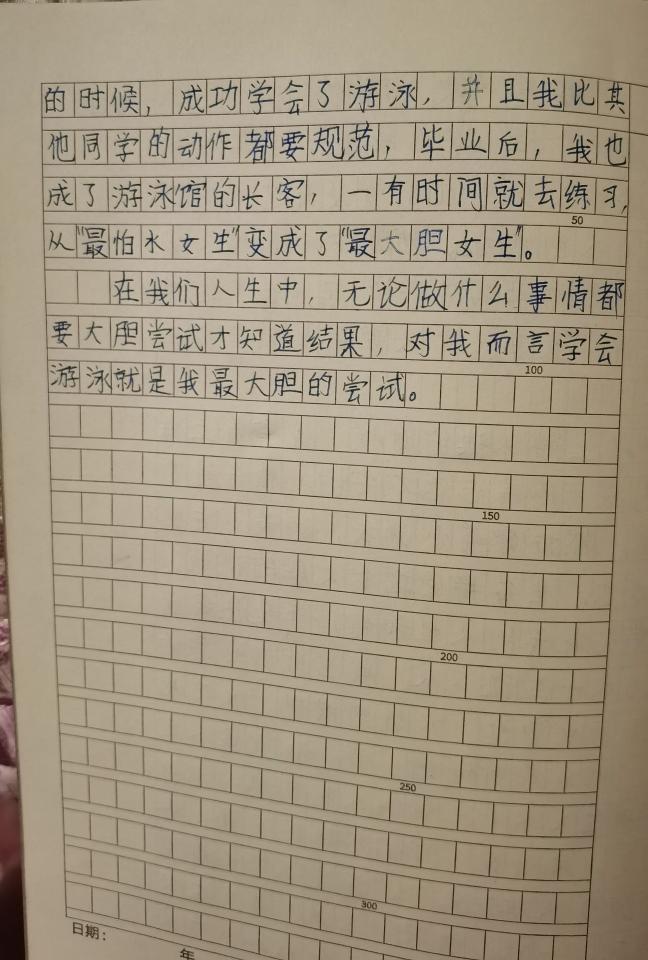 的时候，成功学会了游泳，并且我比其
他同学的动作都要规范，毕业后，我也
成了游泳馆的长客，一有时间就去练习，
50
从“最怕水女生”变成了“最大胆女生”。
在我们人生中，无论做什么事情都
要大胆尝试才知道结果，对我而言学会
100
游泳就是我最大胆的尝试。
150
200
250
300
日期：
年